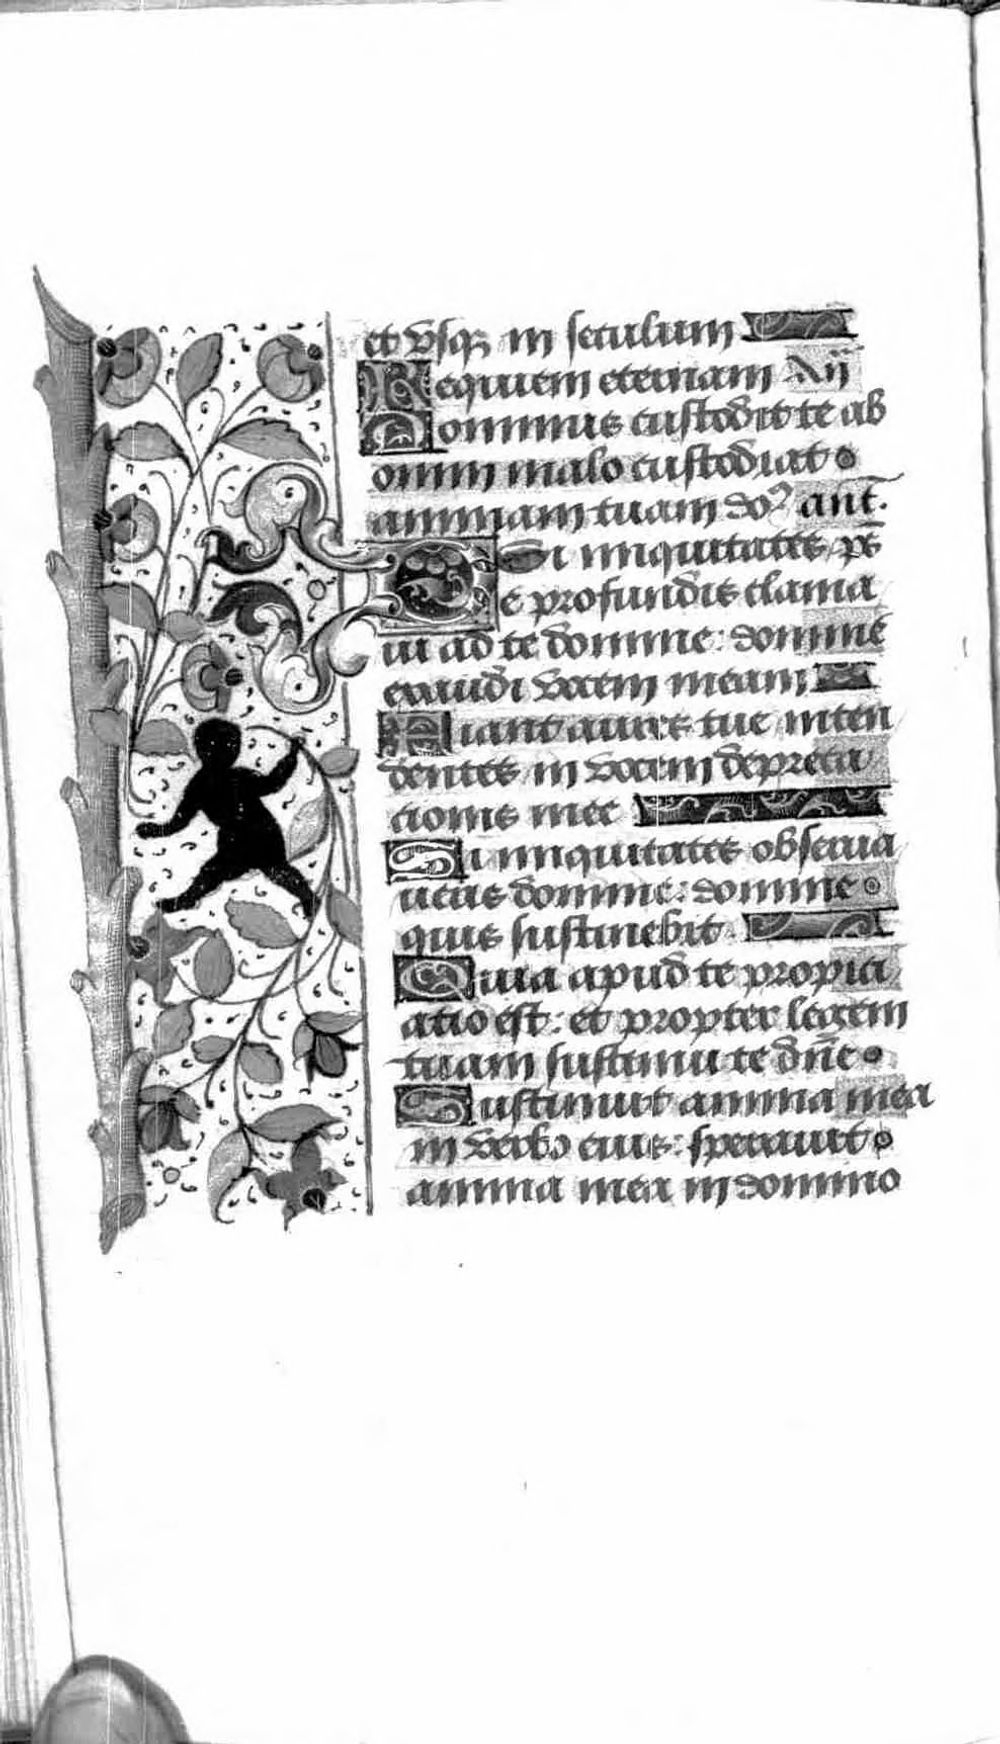 et vsq; in seculum
Requiem eternam Aij
Dominus custodit te ab
omni malo custodiat
animam tuam do² ant.
Si iniquitates ps
De profundis clama
ui ad te domine: domine
exaudi vocem meam
Fiant aures tue inten
dentes in vocem depreca
tionis mee
Si iniquitates obserua
ueris domine: domine
quis sustinebit
Quia apud te propici
atio est: et propter legem
tuam sustinui te dñe
Sustinuit anima mea
in verbo eius: sperauit
anima mea in domino